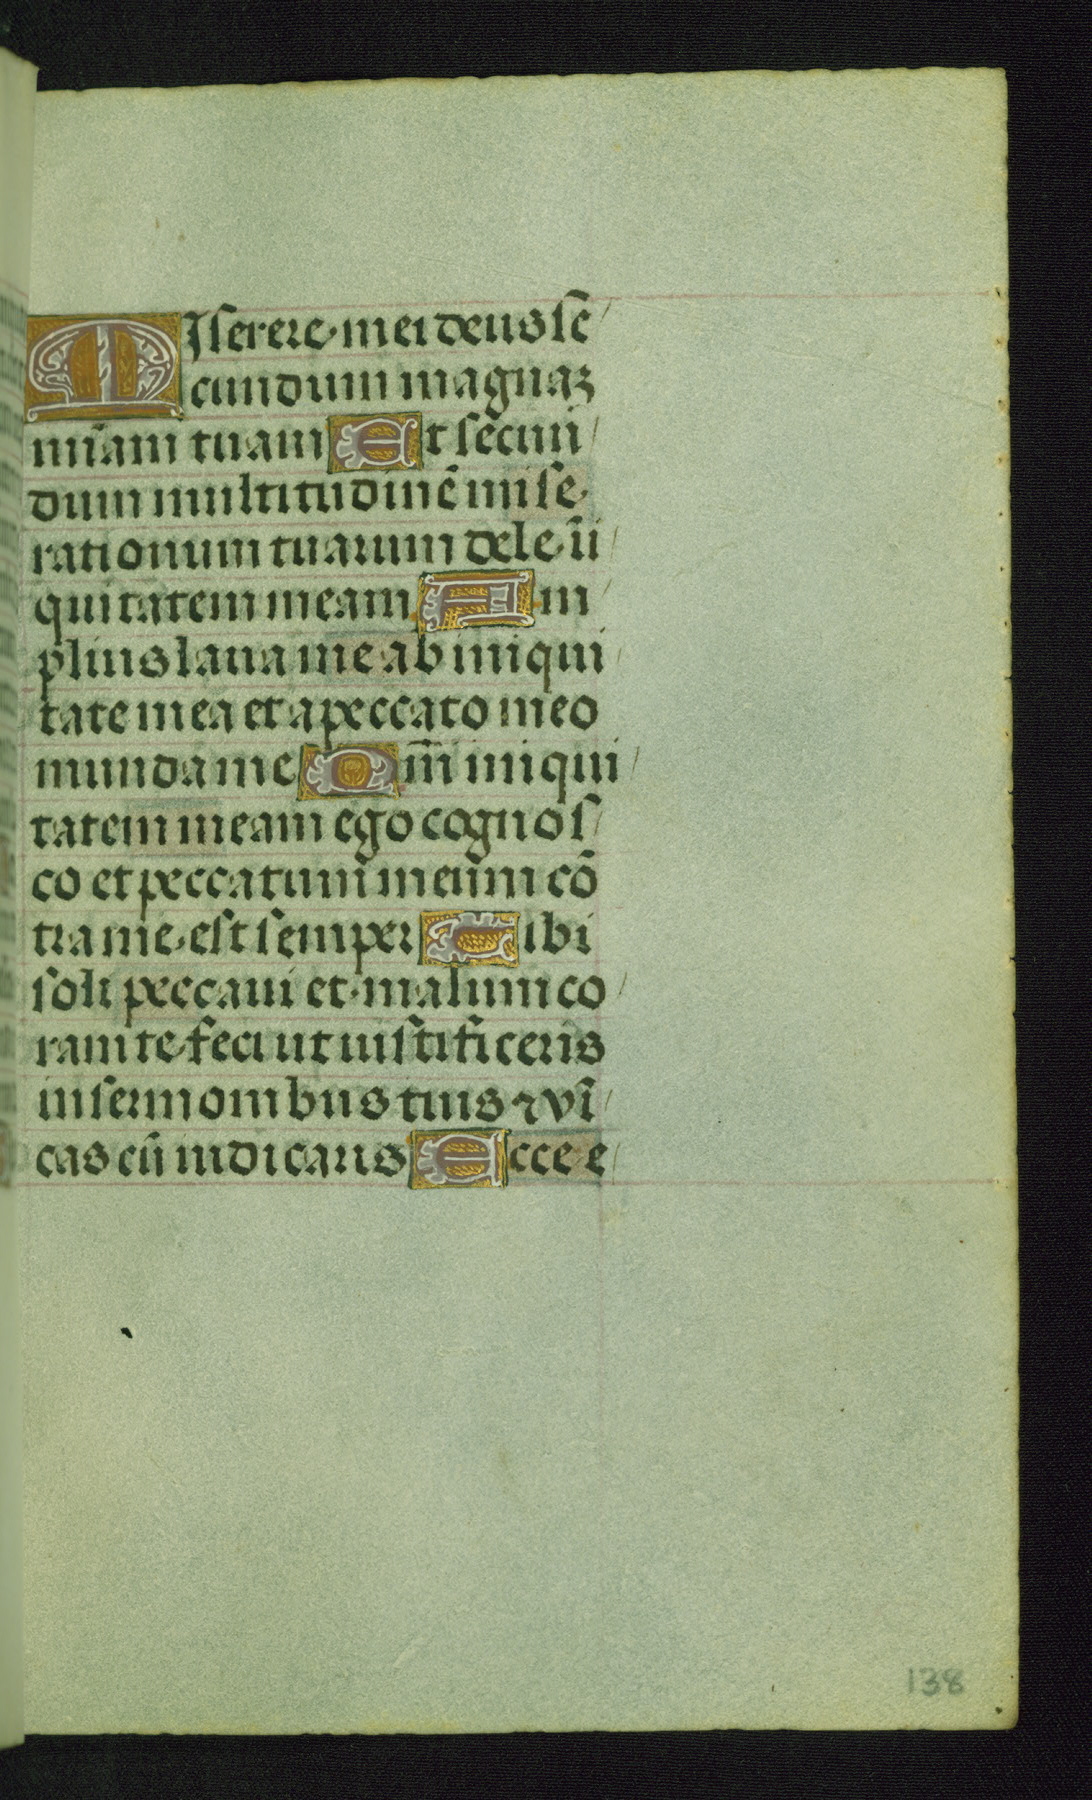 Miserere mei deus sē
cundum magnaꝫ
mīam tuam Et secun
dum multitudinē mise
rationum tuarum dele ini
quitatem meam Am
plius laua me ab iniqui
tate mea et a peccato meo
munda me Qm̄ iniqui
tatem meam ego cognos
co et peccatum meum cō
tra me est semper Tibi
soli peccaui et malum co
ram te feci ut iustificeris
in sermonibus tuis ⁊ vī
cas cū iudicaris Ecce e
138